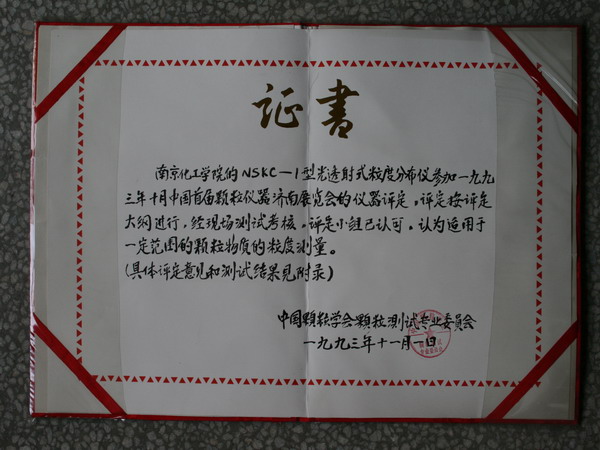 证書
南京化工学院的NSKC—1型光透射式粒度分布仪参加一九九
三年十月中国首届颗粒仪器济南展览会的仪器评定，评定按评定
大纲进行，经现场测试考核，评定小组已认可，认为适用于
一定范围的颗粒物质的粒度测量。
(具体评定意见和测试结果见附录)
中国颗粒学会颗粒测试专业委员会
一九九三年十一月一日